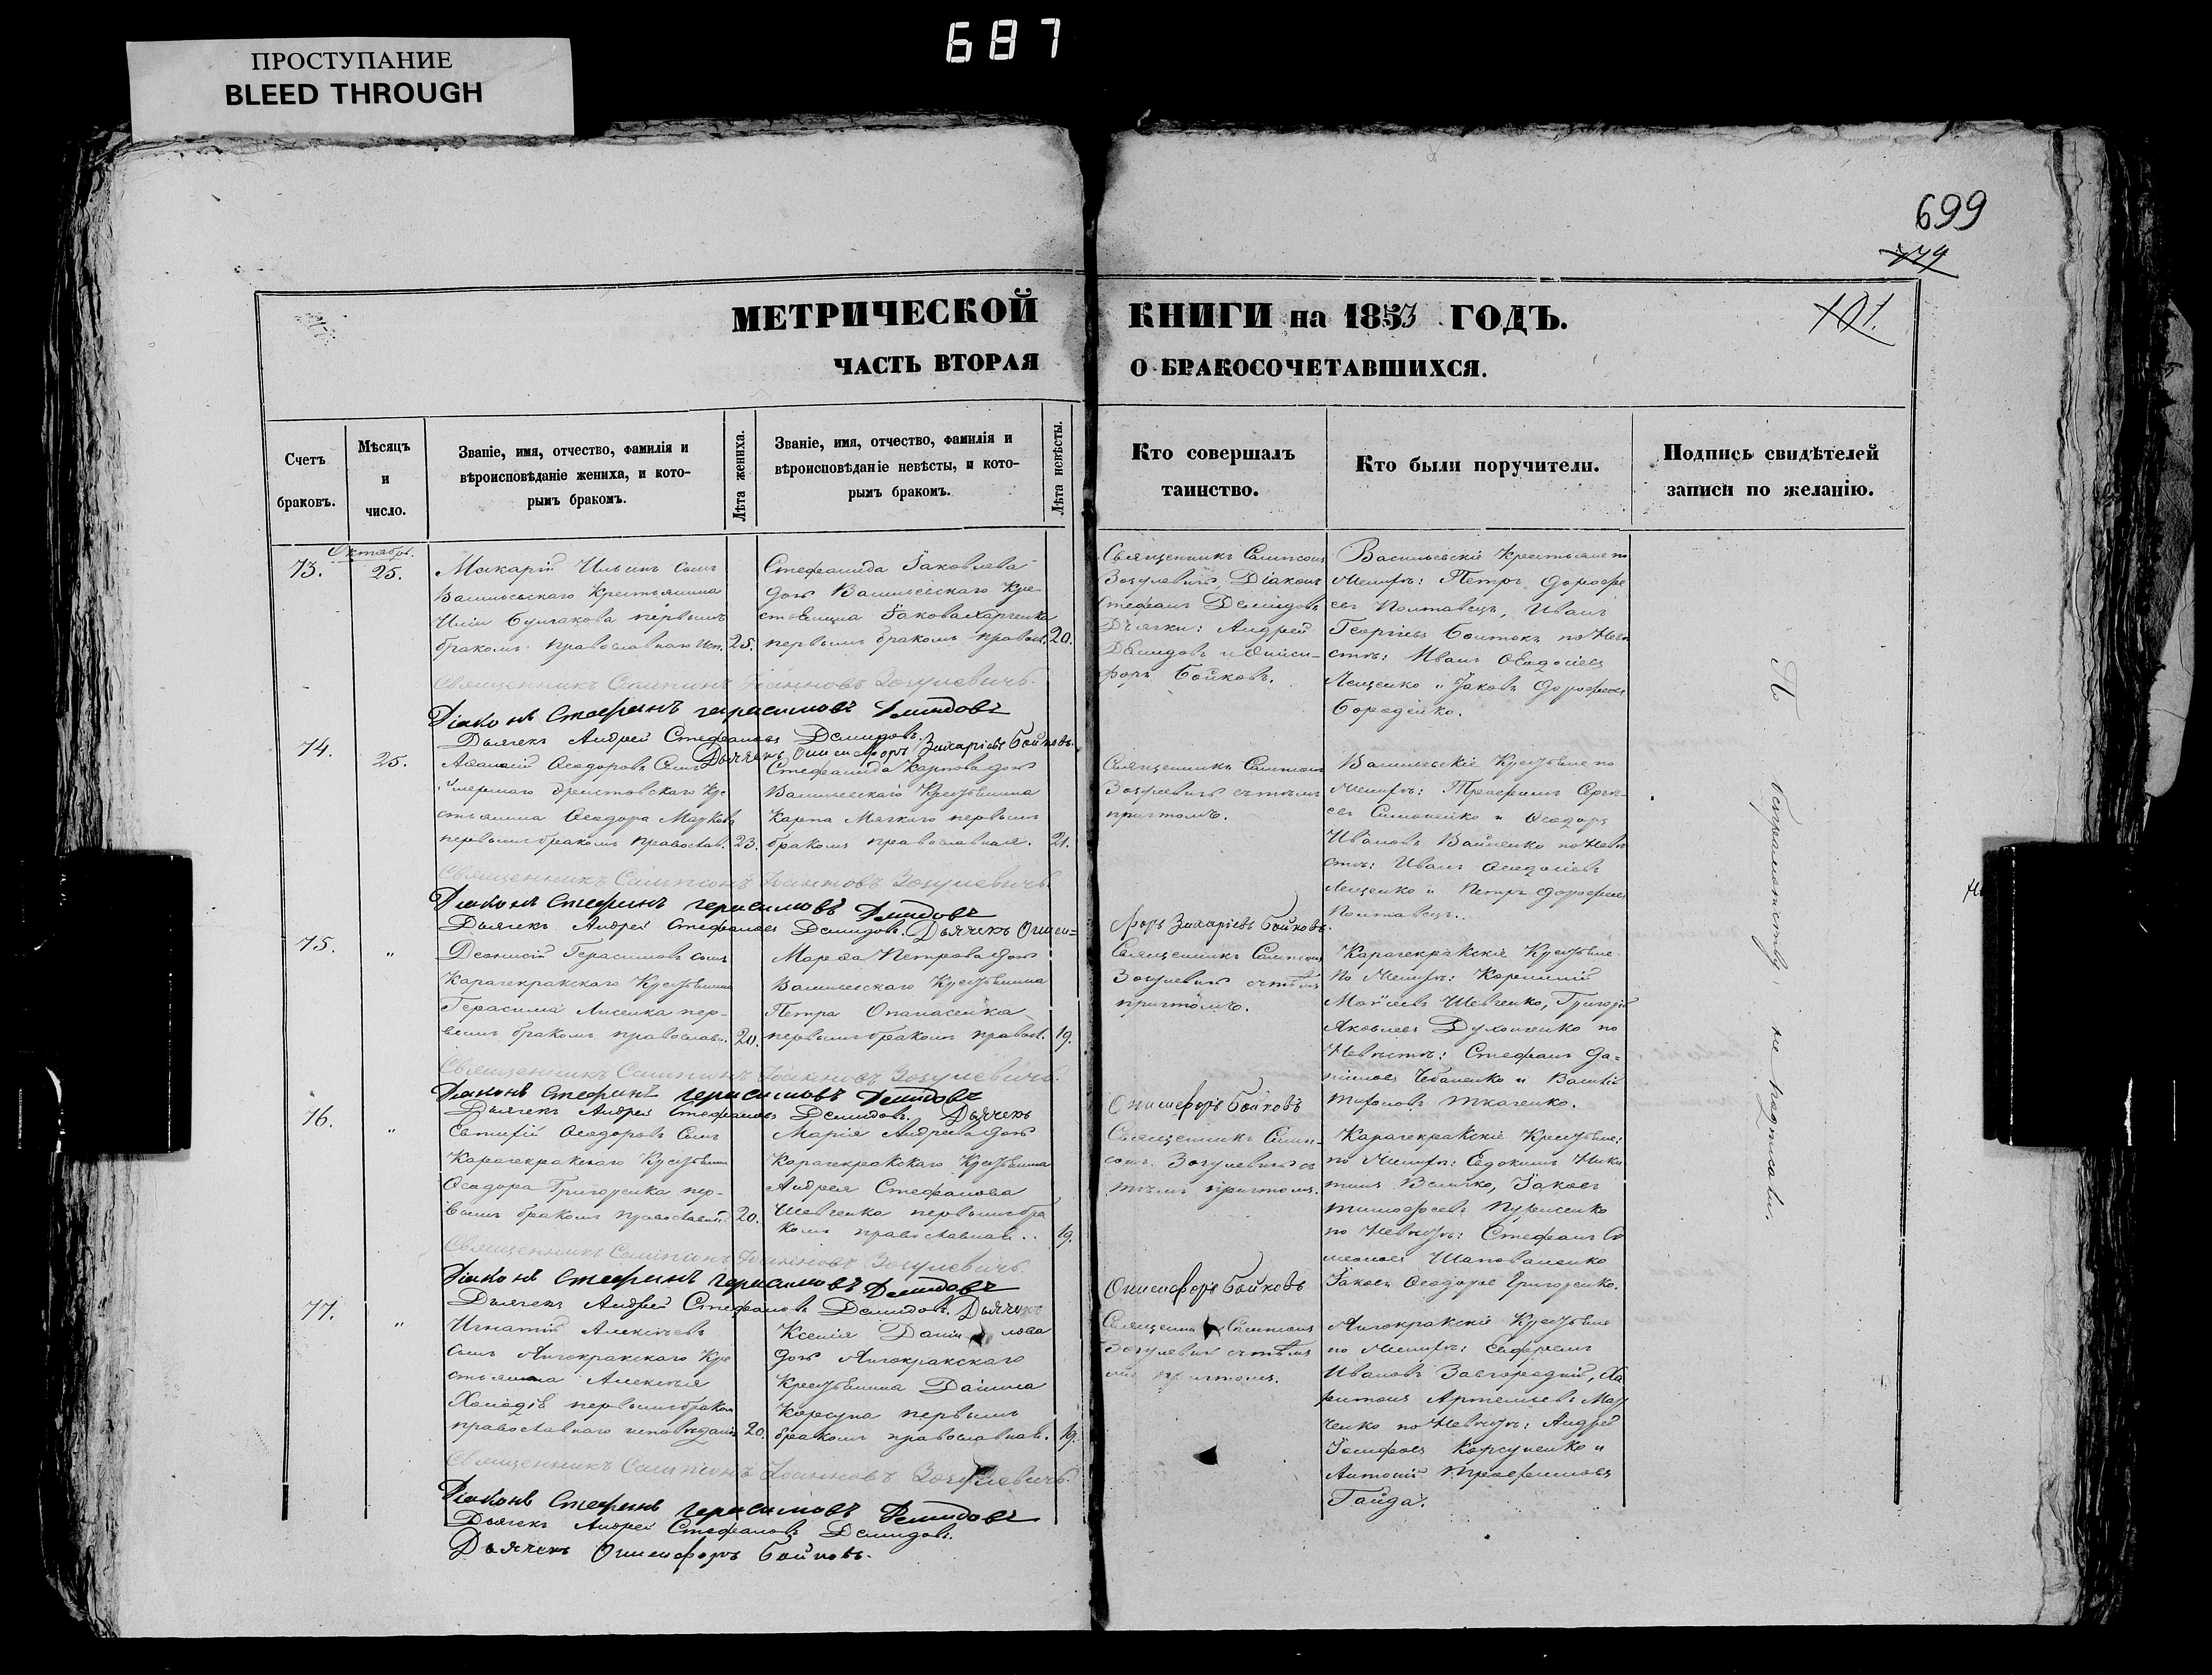 687
ПРОСТУПАНИЕ
BLEED THROUGH
699
101.
МЕТРИЧЕСКОЙ КНИГИ на 1853 ГОДЪ.
ЧАСТЬ ВТОРАЯ О БРАКОСОЧЕТАВШИХСЯ.
Счетъ браковъ.
Мѣсяцъ и число.
Званіе, имя, отчество, фамилія и
вѣроисповѣданіе жениха, и кото-
рымъ бракомъ.
Лѣта жениха.
Званіе, имя, отчество, фамилія и
вѣроисповѣданіе невѣсты, и кото-
рымъ бракомъ.
Лѣта невѣсты.
Кто совершалъ
таинство.
Кто были поручители.
Подпись свидѣтелей
записи по желанію.
73.
Октября.
25.
Макарій Ильинъ сынъ
Васильевскаго Крестьянина
Иліи Булгакова первымъ
бракомъ православнаго исп.
25.
Стефанида Іаковлева
дочь Васильевскаго Кре
стьянина Іакова Харченка
первымъ бракомъ правосл.
20.
Священникъ Сампсонъ
Зогулевичъ, Діаконъ
Стефанъ Демидовъ
Дьячки: Андрей
Демидовъ и Ониси-
форъ Бойковъ.
Васильевскіе Крестьяне по
Женихѣ: Петръ Дорофе
евъ Полтавецъ, Иванъ
Георгіевъ по Невѣ
стѣ: Иванъ Ѳеодосіевъ
Лещенко и Іаковъ Дорофеевъ
Бородейко.
Священникъ Сампсонъ Іоанновъ Зогулевичъ.
Діаконъ Стефанъ Герасимовъ Демидовъ
Дьячекъ Андрей Стефановъ Демидовъ.
Дьячекъ Онисифоръ Захаріевъ Бойковъ.
74.
25.
Аѳанасій Ѳеодоровъ Сынъ
умершаго Кре
стьянина Ѳеодора
первымъ бракомъ православ.
23.
Стефанида Карпова дочь
Васильевскаго Крестьянина
Карпа Мягкаго первымъ
бракомъ православная.
21.
Священникъ Сампсонъ
Зогулевичъ съ тѣмъ
причтомъ.
Васильевскіе Крестьяне по
Женихѣ: Трофимъ Серге-
евъ Симоненко и Ѳеодоръ
Ивановъ по Невѣ
стѣ: Иванъ Ѳеодосіевъ
Лещенко и Петръ Дорофеевъ
Полтавецъ.
Священникъ Сампсонъ Іоанновъ Зогулевичъ.
Діаконъ Стефанъ Герасимовъ Демидовъ
Дьячекъ Андрей Стефановъ Демидовъ. Дьячекъ Ониси=
форъ Захаріевъ Бойковъ.
75.
"
Діонисій Герасимовъ сынъ
Карачекракскаго Крестьянина
Герасима Лисенка пер-
вымъ бракомъ православн.
20.
Марѳа Петрова дочь
Васильевскаго Крестьянина
Петра Опанасенка
первымъ бракомъ правосл.
19.
Священникъ Сампсонъ
Зогулевичъ съ тѣмъ
причтомъ.
Карачекракскіе Крестьяне
по Женихѣ: Корнилій
Моѵсеевъ Шевченко, Григорій
Яковлевъ Духонченко по
Невѣстѣ: Стефанъ Да=
ніиловъ Чабаненко и Василій
Тифоновъ Ткаченко.
Священникъ Сампсонъ Іоанновъ Зогулевичъ.
Діаконъ Стефанъ Герасимовъ Демидовъ
Дьячекъ Андрей Стефановъ Демидовъ. Дьячекъ
Онисифоръ Бойковъ
76.
"
Евтихій Ѳеодоровъ Сынъ
Карачекракскаго Крестьянина
Ѳеодора Григоренка пер-
вымъ бракомъ православн.
20.
Марія Андреева дочь
Карачекракскаго Крестьянина
Андрея Стефанова
Шевченка первымъ бра
комъ православная.
19.
Священникъ Самп-
сонъ Зогулевичъ съ
тѣмъ причтомъ.
Карачекракскіе Крестьяне:
по Женихѣ: Евдокимъ Ники
тинъ Величко, Іаковъ
Тимофеевъ
по Невѣстѣ: Стефанъ
Шаповаленко
Іаковъ Ѳеодоровъ Григоренко.
Священникъ Сампсонъ Іоанновъ Зогулевичъ.
Діаконъ Стефанъ Герасимовъ Демидовъ
Дьячекъ Андрей Стефановъ Демидовъ. Дьячекъ
Онисифоръ Бойковъ
77.
"
Игнатій Алексѣевъ
сынъ Янчокракскаго Кре
стьянина Алексѣя
первымъ бракомъ
православнаго исповѣданія
20.
Ксенія Даниилова
дочь Янчокракскаго
Крестьянина Даніила
Корсуна первымъ
бракомъ православная.
19.
Священникъ Сампсонъ
Зогулевичъ съ тѣмъ
причтомъ.
Янчокракскіе Крестьяне
по Женихѣ: Ефремъ
Ивановъ Завгородній, Ха
ритонъ Артемьевъ
по Невѣстѣ: Андрей
Іосифовъ Корсуненко и
Антоній Трофимовъ
Гайда.
Священникъ Сампсонъ Іоанновъ Зогулевичъ.
Діаконъ Стефанъ Герасимовъ Демидовъ
Дьячекъ Андрей Стефановъ Демидовъ.
Дьячекъ Онисифоръ Бойковъ.
По безграмотству, не подписали.